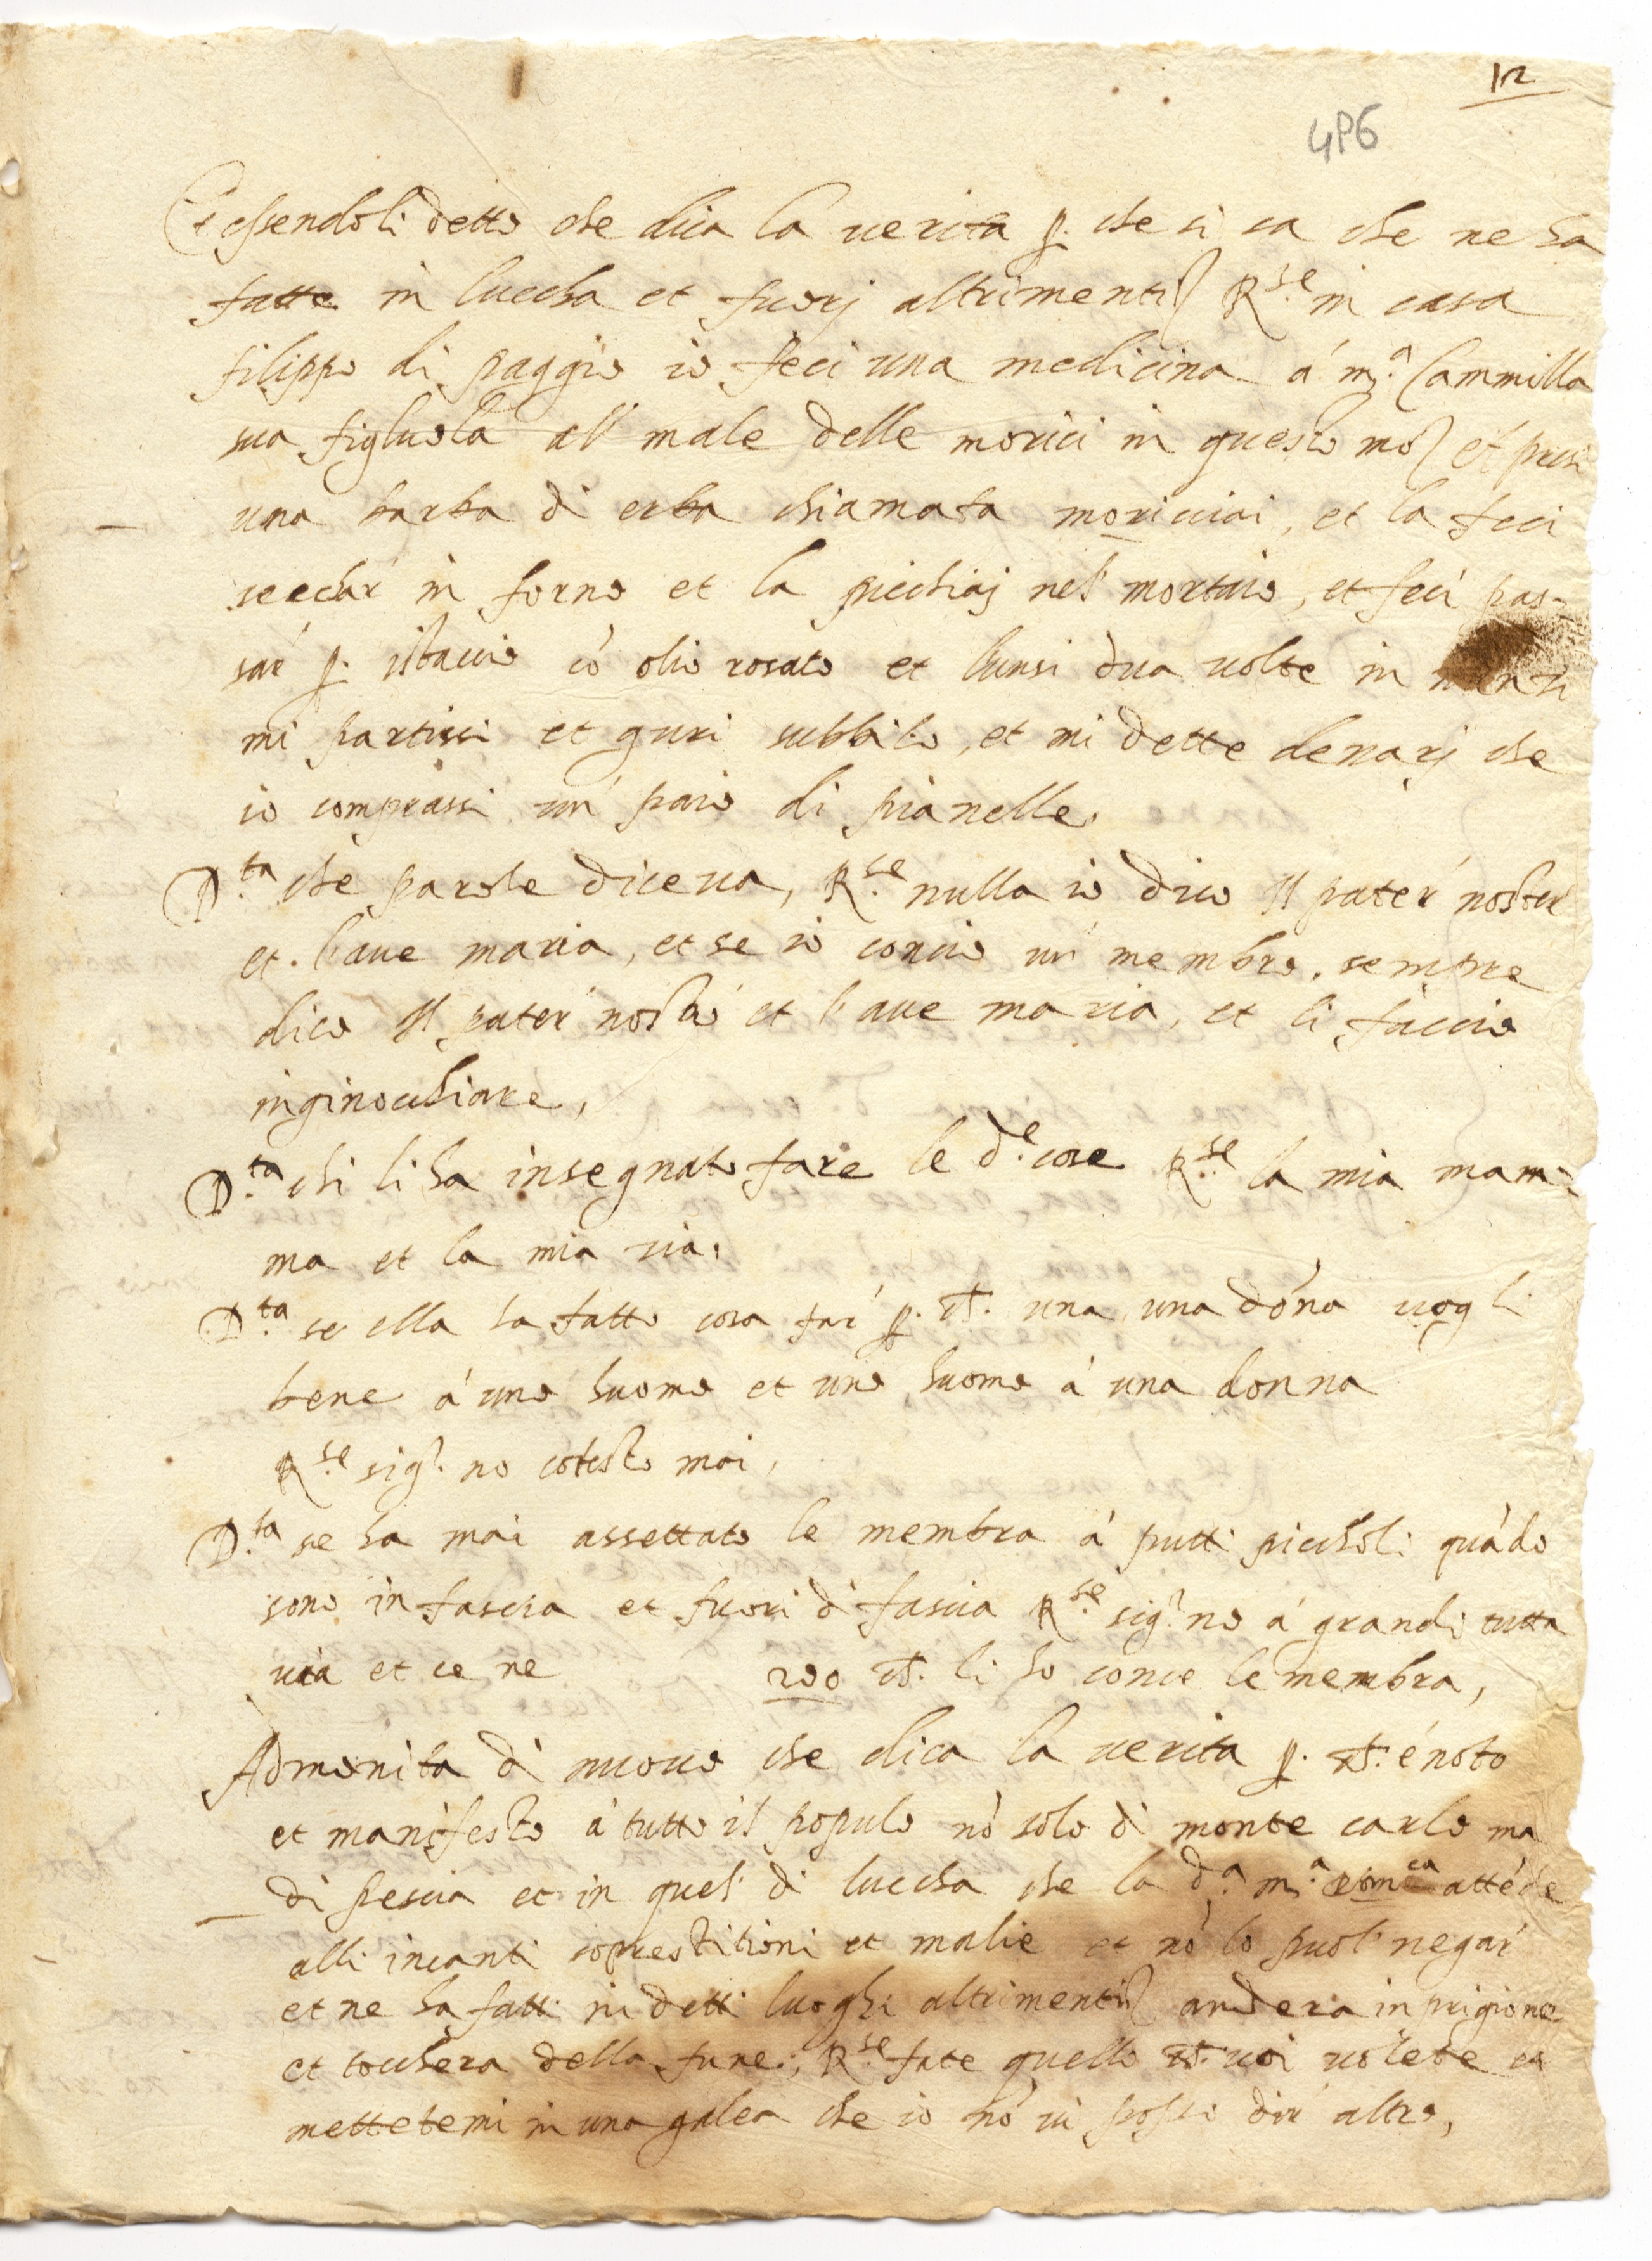 12
496
Et essendoli detto che dica la verita p. che si sa che ne ha
fatte in luccha et fuorj altrimenti R.se in casa
filippo di paggio io feci una medicina á m.a Cammilla
sua figluola al male delle morici in questo mo et presi
una barba di erba chiamata moricciai, et la feci
secchar in forno et la picchiaj nel mortaio, et feci pas-
sar p. istaccio cō olio rosato et l'unsi dua volte in
mi partissi et guri subbito, et mi dette denarj che
io comprassi un paio di pianelle.
D.ta che parole diceva, R.se nulla io dico Il pater noster
et l'ave maria, et se io concio un membro sempre
dico Il pater nostro et l'ave maria, et li faccio
inginocchiare,
D.ta chi li ha insegnato fare le d.e cose R.se la mia mam-
ma et la mia zia.
D.ta se ella ha fatto cosa far p. ch. una una dōna vogli
bene á uno huomo et uno huomo á una donna
R.se sig.r no cotesto mai,
D.ta se ha mai assettato le membra á putti picchioli quādo
sono in fascia et fuori di fascia R.se sig.r no á grandi tutta
via et ce ne 200 ch. li ho conce le membra,
Admonita di nuovo che dica la verita p. ch. é noto
et manifesto á tutto il populo nō solo di monte carlo ma
di pescia et in quel di luccha che la d.a m.a dom.ca attēde
alli incanti soprestitioni et malie et nō lo puol negar
et ne ha fatti in detti luoghi altrimenti andera in prigione
et tocchera della fune, R.se fate quello ch. voi volete et
mettetemi in una galea che io nō vi posso dir altro,